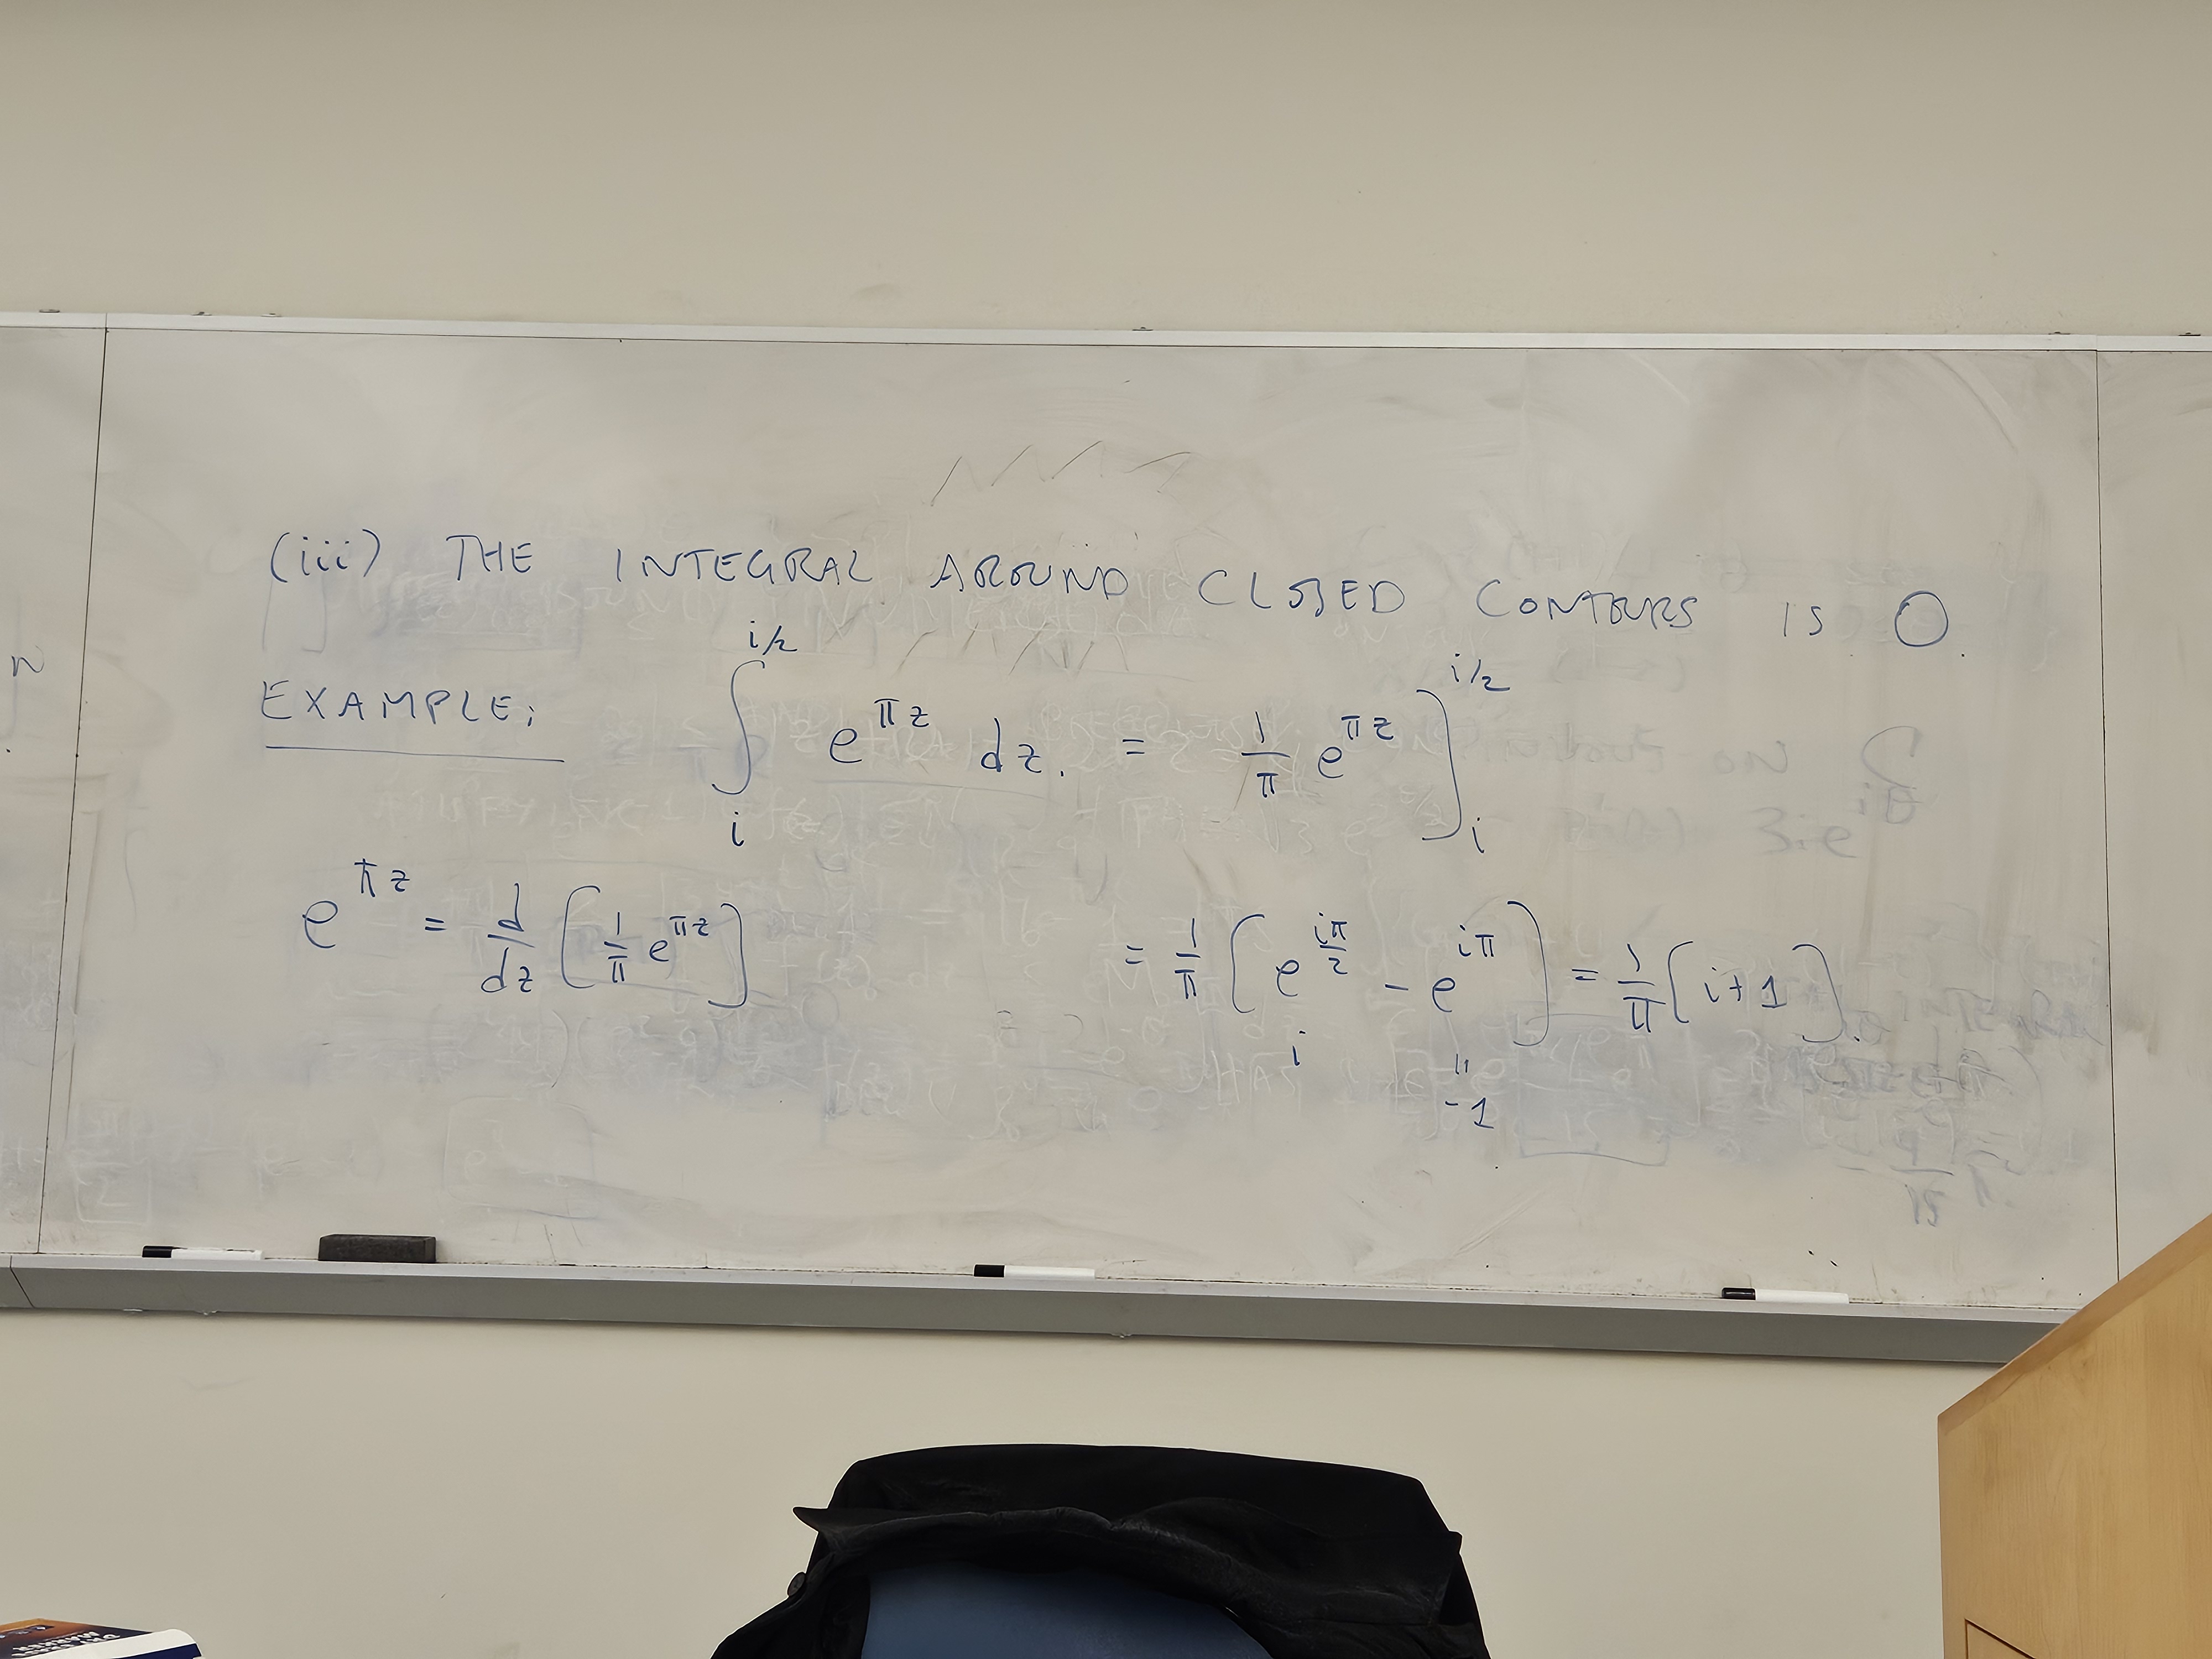 (iii) THE INTEGRAL AROUND CLOSED CONTOURS IS 0.
EXAMPLE: ∫_i^{i/2} e^{πz} dz. = 1/π e^{πz} ]_i^{i/2}
e^{πz} = d/dz [ 1/π e^{πz} ] = 1/π [ e^{iπ/2} - e^{iπ} ] = 1/π [ i+1 ].
i
"
-1